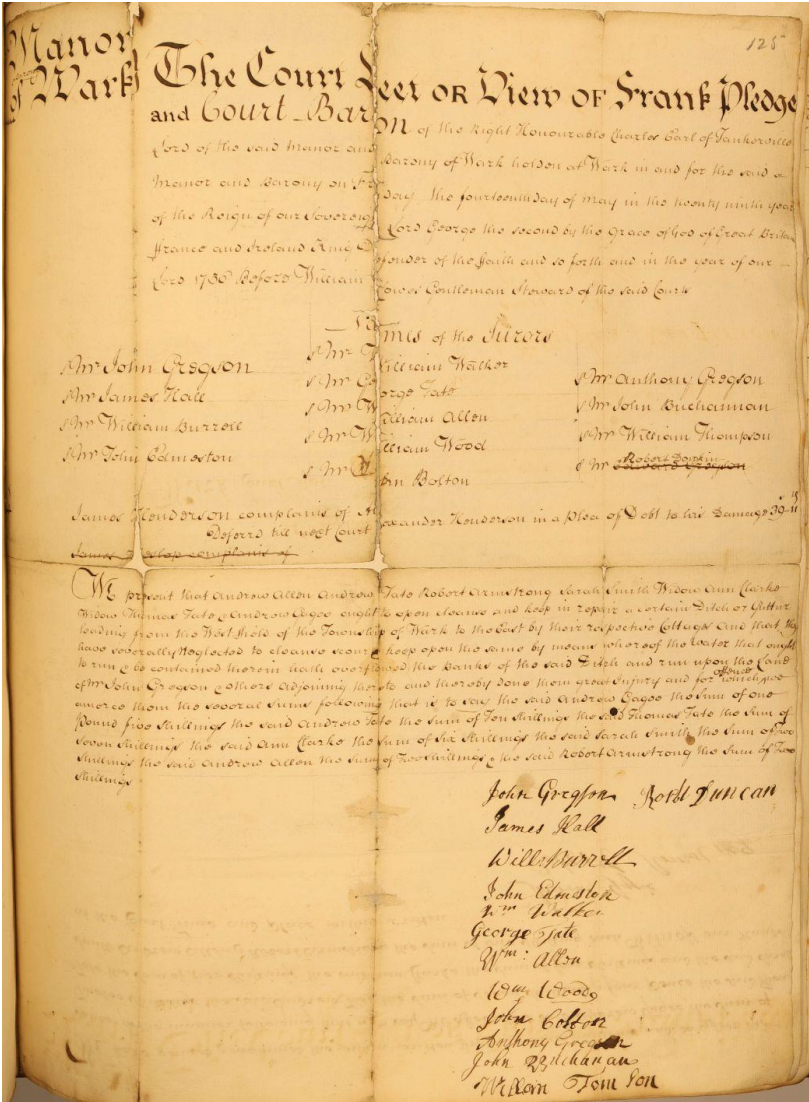 125
Manor of Wark
The Court Leet OR View OF Frank Pledge
and Court Baron of the Right Honourable Charles Earl of Tankerville
Lord of the said Manor and Barony of Wark holden at Wark in and for the said
Manor and Barony on Friday the fourteenth day of May in the twenty ninth year
of the Reign of our Sovereign Lord George the second by the Grace of God of Great Britain
France and Ireland King Defender of the Faith and so forth and in the year of our
Lord 1756 Before William Lowes Gentleman Steward of the said Courts
Names of the Jurors
Mr John Gregson
Mr James Hall
Mr William Burrell
Mr John Edmeston
Mr William Walker
Mr George Tate
Mr William Allen
Mr William Wood
Mr John Bolton
Mr Anthony Gregson
Mr John Buchannan
Mr William Thompson
Mr Robert
James Henderson complains of Alexander Henderson in a Plea of Debt to his Damage 39
Deferrd till next Court
James complains of
We present that Andrew Allen Andrew Tate Robert Armstrong Sarah Smith Widow Ann Clarke
Widow Thomas Tate & Andrew Cagoe ought to open cleanse and keep in repair a certain Ditch or Gutter
leading from the West field of the Township of Wark to the East by their respective Cottages And that they
have severally Neglected to cleanse scour & keep open the same by means whereof the water that ought
to run & be contained therein hath overflowed the Banks of the said Ditch and run upon the Land
of Mr John Gregson & others Adjoining thereto and thereby done them great Injury and for which offence we
amerce them the several sums following that is to say the said Andrew Cagoe the Sum of one
Pound five Shillings the said Andrew Tate the Sum of Ten Shillings the said Thomas Tate the Sum of
Seven Shillings the said Ann Clarke the Sum of Six Shillings the said Sarah Smith the Sum of Two
Shillings the said Andrew Allen the Sum of Two Shillings & the said Robert Armstrong the Sum of Two
Shillings
John Gregson Robt Duncan
James Hall
Will Burrell
John Edmeston
Wm Walker
George Tate
Wm: Allen
Wm Wood
John Bolton
Anthony Gregson
John Buchanan
William Tomson